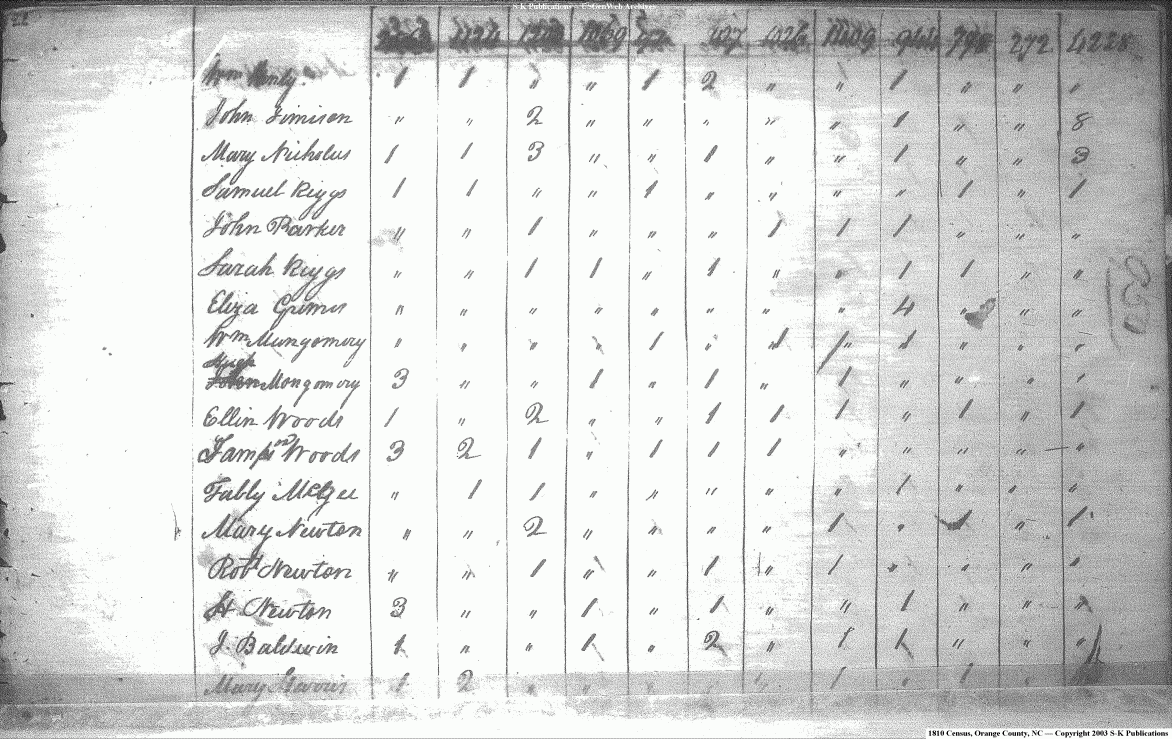 S-K Publications - USGenWeb Archives
1124 1069 427 426 272 4228
Wm 1 1 " " 1 2 " " 1 " " "
John Jimison " " 2 " " " " " 1 " " 8
Mary Nicholus 1 1 3 " " 1 " " 1 " " 3
Samuel Riggs 1 1 " " 1 " " " " 1 " 1
John Barker " " 1 " " " 1 1 1 " " "
Sarah Riggs " " 1 1 " 1 " " 1 1 " "
Eliza Grimes " " " " " " " " 4 " " "
Wm Mungomery " " " " 1 " 1 " 1 " " "
Hugh
Mongomery 3 " " 1 " 1 " 1 " " " 1
Ellin Woods 1 " 2 " " 1 1 1 " 1 " 1
Woods 3 2 1 " 1 1 1 " " " " "
Fably McGee " 1 1 " " " " " 1 " " "
Mary Newton " " 2 " " " " 1 " " 1
Robt Newton " " 1 " " 1 " 1 " " " "
H Newton 3 " " 1 " 1 " " 1 " " "
J. Baldwin 1 " " 1 " 2 " 1 1 " " "
Mary Harris 1 2 " " " 1 " 1 "
1810 Census, Orange County, NC — Copyright 2003 S-K Publications